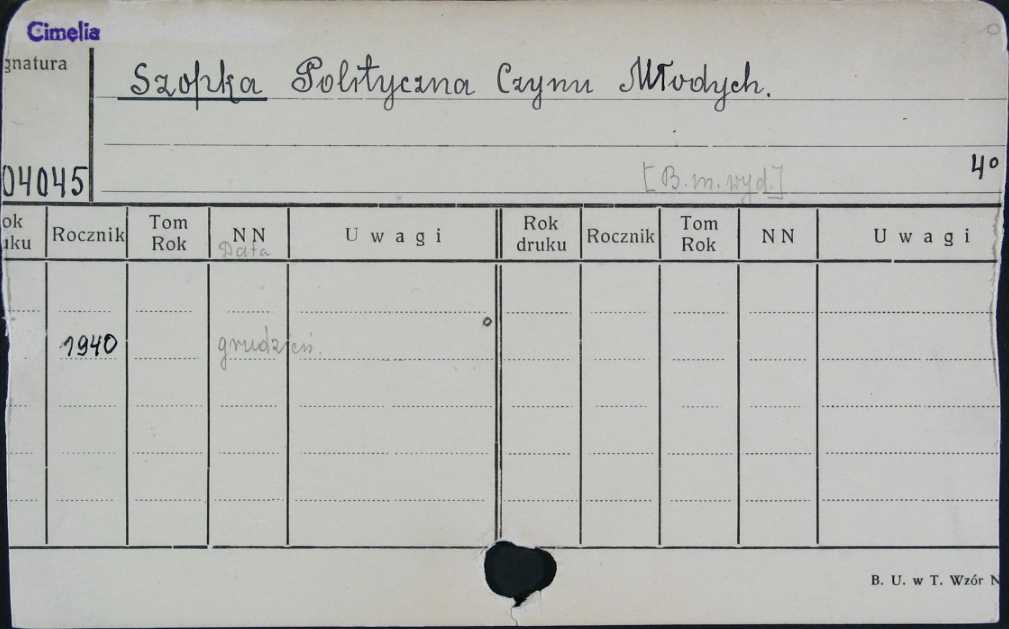 Cimelia
gnatura
Szopka Polityczna Czynu Młodych.
04045
[B.m.wyd.]
4°
ok uku Rocznik Tom Rok NN Uwagi Rok druku Rocznik Tom Rok NN Uwagi
Data
1940 grudzień.
B. U. w T. Wzór N